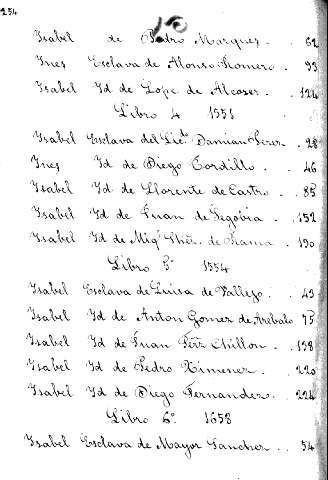 254
Isabel de Pedro Marques . 62
Ines Esclava de Alonso Romero . 93
Isabel Id de Lope de Alcoser . 124
Libro 4 1551
Isabel Esclava del Licdo Damian Perez . 28
Ines Id de Diego Gordillo . 46
Isabel Id de Llorente de Castro . 85
Isabel Id de Juan de Segovia . 152
Isabel Id de Migl de 190
Libro 5º 1554
Isabel Esclava de Luisa de Vallejo . 43
Isabel Id de Anton Gomez de Arebalo 75
Isabel Id de Juan Perz Chillon . 138
Isabel Id de Pedro Ximenez . 220
Isabel Id de Diego Fernandez . 224
Libro 6º 1658
Isabel Esclava de Mayor Sanchez . . 54